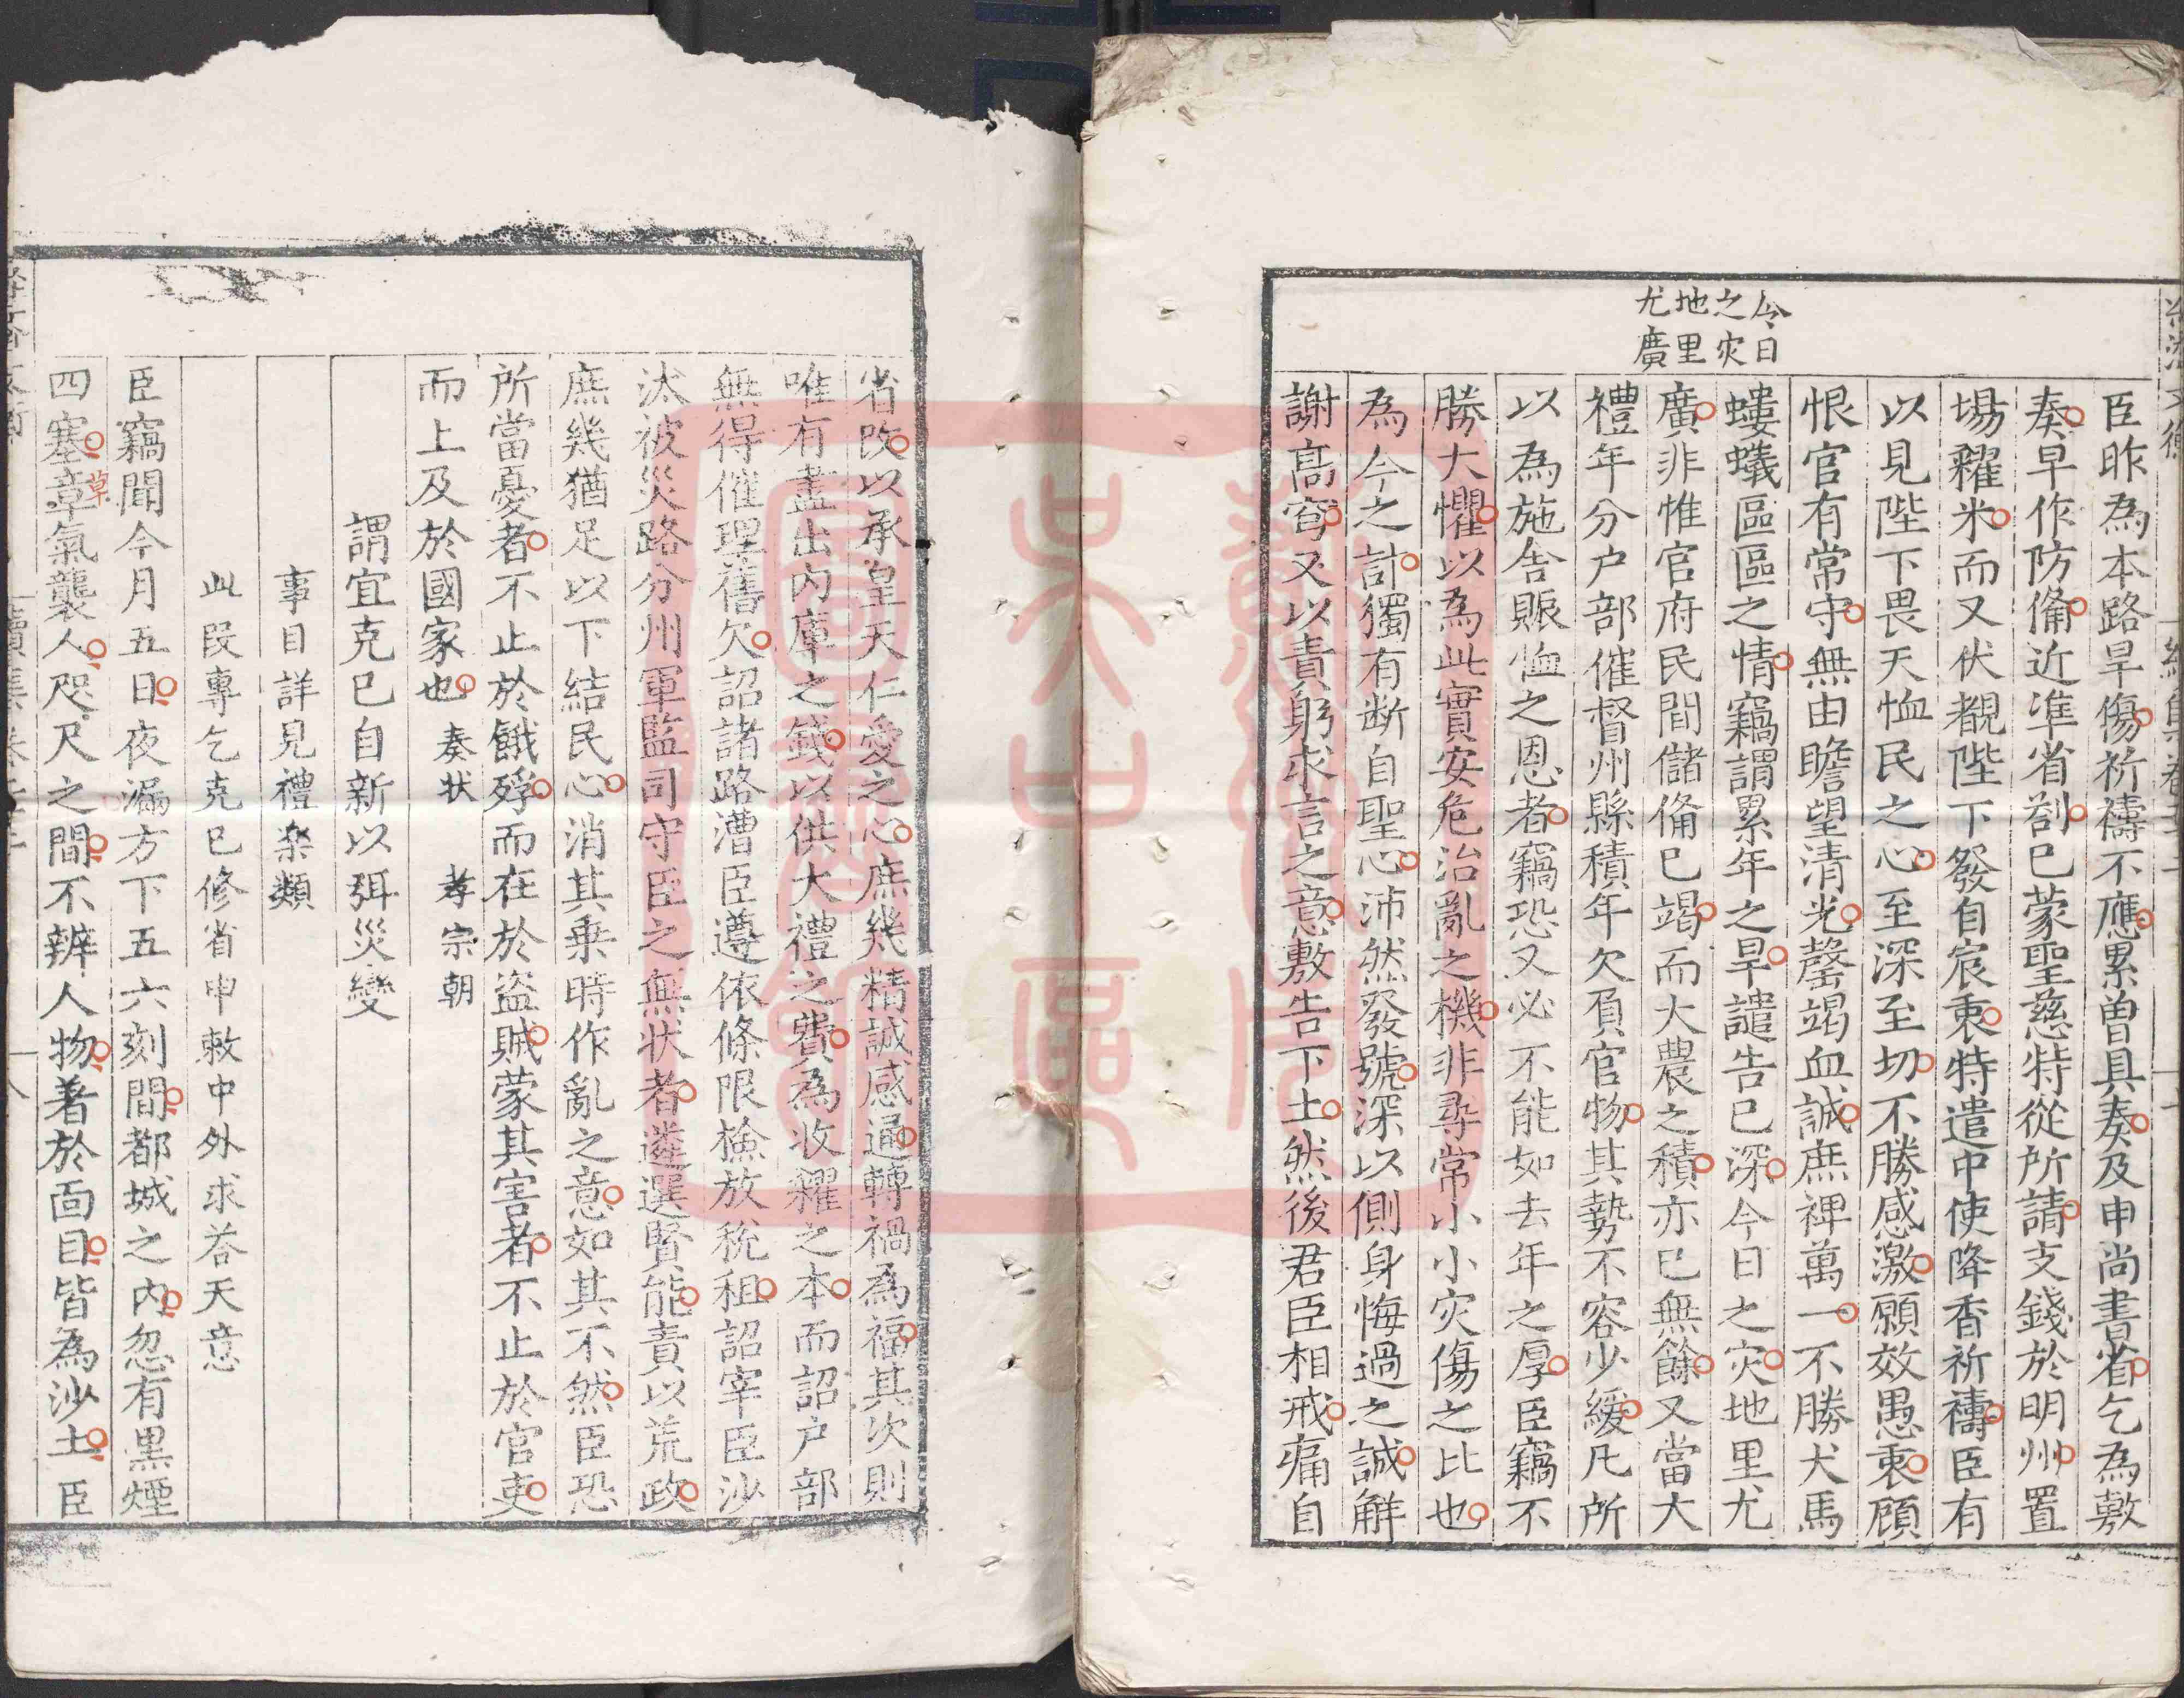 今日
之灾
地里
尤廣
臣昨為本路旱傷祈禱不應累曽具奏及申尚書省乞為敷
奏早作防備近准省劄已蒙聖慈特從所請支錢於明州置
場糴米而又伏覩陛下發自宸衷特遣中使降香祈禱臣有
以見陛下畏天恤民之心至深至切不勝感激願效愚衷顧
恨官有常守無由瞻望清光罄竭血誠庶裨萬一不勝犬馬
螻蟻區區之情竊謂累年之旱譴告已深今日之灾地里尤
廣非惟官府民間儲備已竭而大農之積亦已無餘又當大
禮年分户部催督州縣積年欠負官物其勢不容少緩凡所
以為施舍賑恤之恩者竊恐又必不能如去年之厚臣竊不
勝大懼以為此實安危治亂之機非尋常小小灾傷之比也
為今之計獨有断自聖心沛然發號深以側身悔過之誠解
謝高穹又以責躬求言之意敷告下土然後君臣相戒痛自
省改以承皇天仁愛之心庶幾精誠感通轉禍為福其次則
唯有盡出内庫之錢以供大禮之費為收糴之本而詔户部
無得催理舊欠詔諸路漕臣遵依條限檢放税租詔宰臣沙
汰被災路分州軍監司守臣之無状者遴選賢能責以荒政
庶幾猶足以下結民心消其乗時作亂之意如其不然臣恐
所當憂者不止於餓殍而在於盗賊蒙其害者不止於官吏
而上及於國家也 奏状 孝宗朝
謂宜克已自新以弭災變
事目詳見禮楽類
此段專乞克已修省申敕中外求荅天意
臣竊聞今月五日夜漏方下五六刻間都城之内忽有黒煙
四塞章氣襲人咫尺之間不辨人物着於面目皆為沙土臣
草